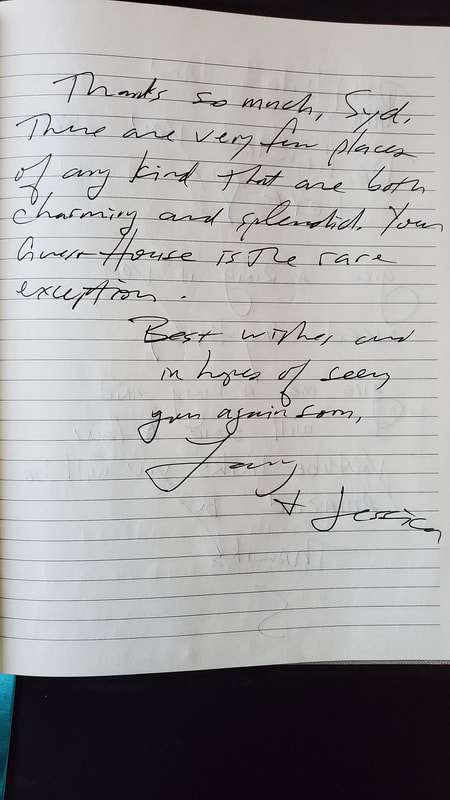 Thanks so much, Syd.
There are very few places
of any kind that are both
charming and splendid. Your
Guest House is the rare
exception.
Best wishes, and
in hopes of seeing
you again soon,
+ Jessica